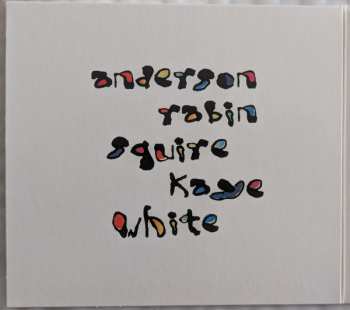 anderson
rabin
squire
kaye
white